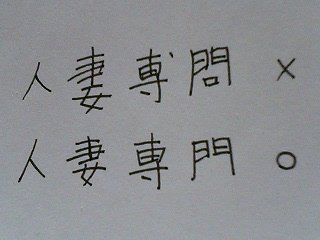 人妻専゛問 ×
人妻専門 ○